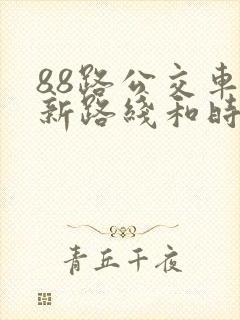 88路公交车
新路线和时
青丘千夜